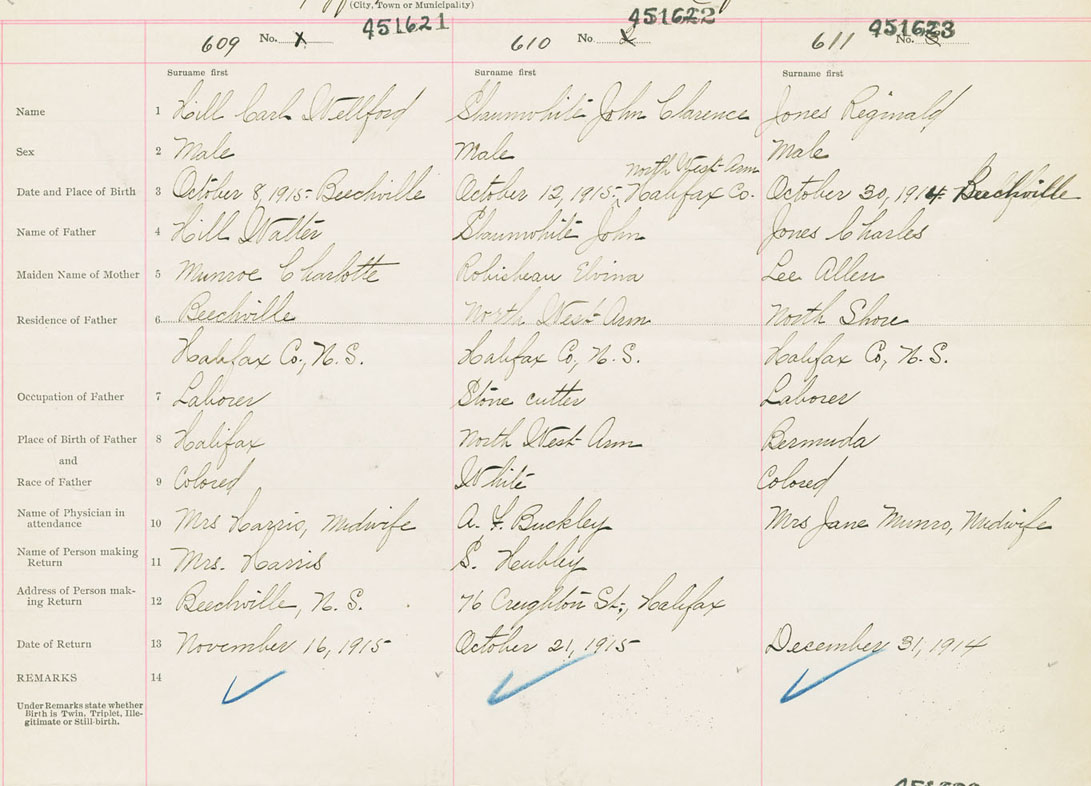 (City, Town or Municipality)
451621 451622 451623
609 No. 610 No. 611 No.
Surname first Surname first Surname first
Name 1 Hill Carl Wellford Shaumwhite John Clarence Jones Reginald
Sex 2 Male Male Male
North West Arm
Date and Place of Birth 3 October 8, 1915 - Beechville October 12, 1915 - Halifax Co. October 30, 1914 Beechville
Name of Father 4 Hill Walter Shaumwhite John Jones Charles
Maiden Name of Mother 5 Munroe Charlotte Robicheau Elvina Lee Allen
Residence of Father 6 Beechville North West Arm North Shore
Halifax Co., N.S. Halifax Co, N.S. Halifax Co, N.S.
Occupation of Father 7 Laborer Stone cutter Laborer
Place of Birth of Father 8 Halifax North West Arm Bermuda
and
Race of Father 9 Colored White Colored
Name of Physician in
attendance 10 Mrs Harris, Midwife A. F. Buckley Mrs Jane Munro, Midwife
Name of Person making
Return 11 Mrs. Harris S. Hubley
Address of Person mak-
ing Return 12 Beechville, N.S. 76 Creighton St., Halifax
Date of Return 13 November 16, 1915 October 21, 1915 December 31, 1914
REMARKS 14
Under Remarks state whether
Birth is Twin, Triplet, Ille-
gitimate or Still-birth.